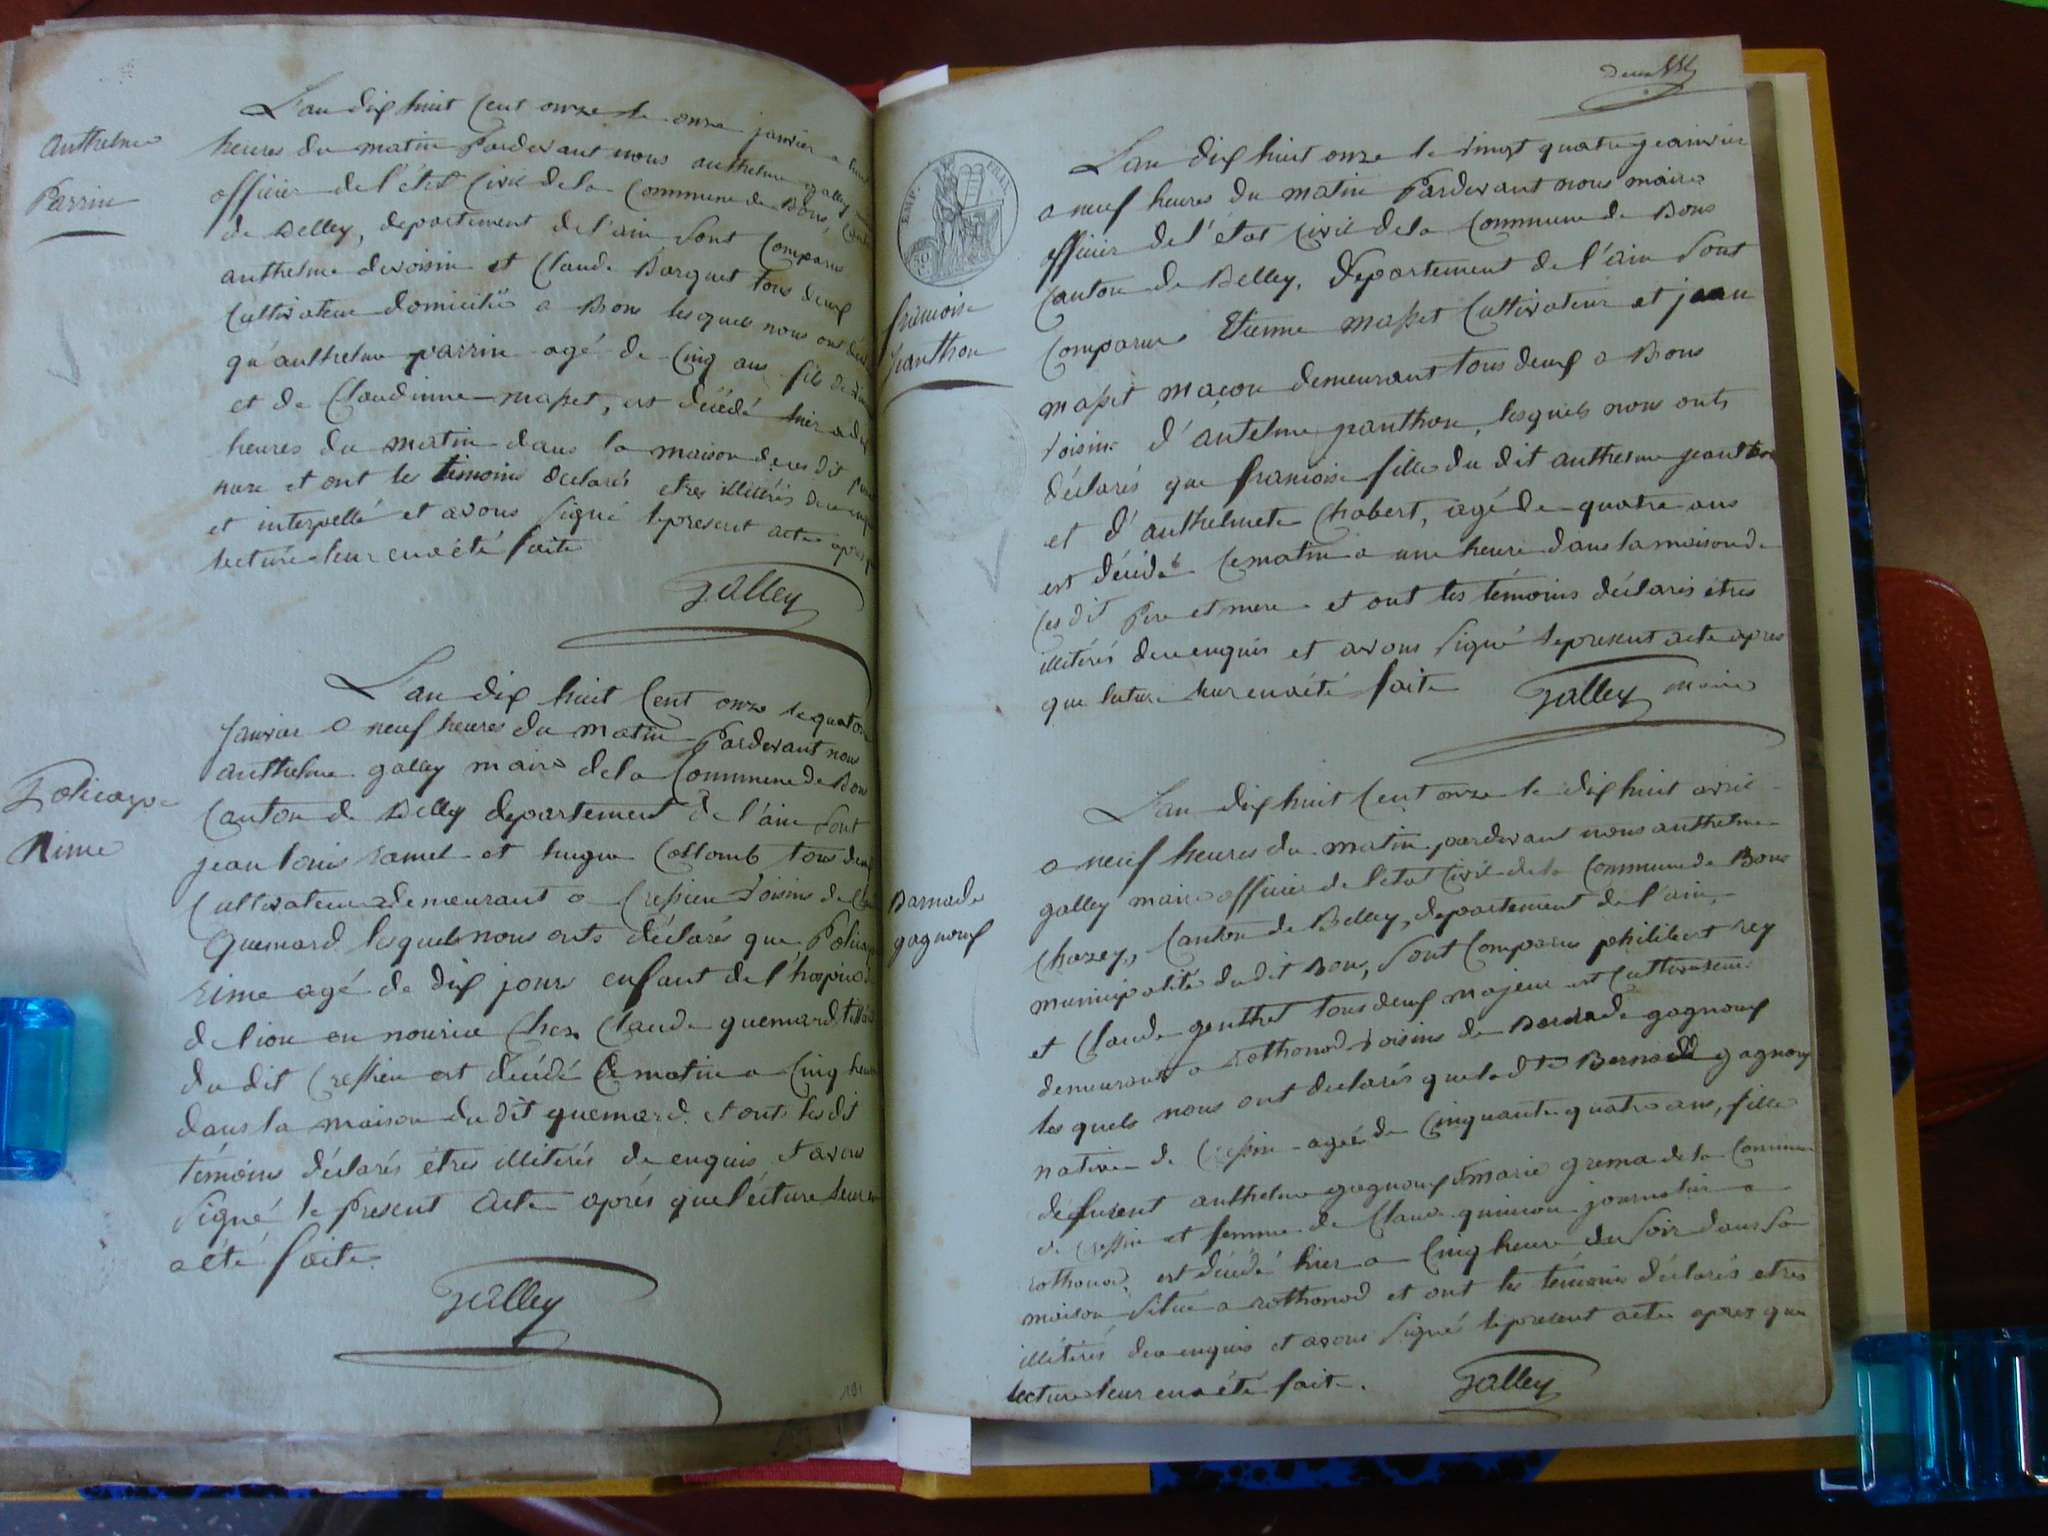 Anthelme
Perrin
L'an dix huit cent onze le onze janvier a huit
heures du matin Pardevant nous anthelme galley
officier de l'état Civil de la Commune de Bons,
de Belley, departement de l'ain Sont Comparus
anthelme devoisin et Claude Barquet tous deux
Cultivateur domiciliés a Bons lesquels nous ont
qu'anthelme perrin agé de Cinq ans fils de
et de Claudinne masset, est décédé hier a dix
heures du matin dans la maison de ces dit
mere et ont les témoins declarés etres illitérés
et interpellé et avons Signé le present acte
lecture leur en a été faite
Galley
Policarpe
Rime
L'an dix huit Cent onze le quatorze
Janvier a neuf heures du matin Pardevant nous
anthelme galley maire de la Commune de Bons
Canton de Belley departement de l'ain Sont
jean louis ramel et hugue Collomb tous deux
Cultivateur demeurant a Cressieu voisins de
quemard lesquels nous onts déclarés que
rime agé de dix jours enfant de l'hospice
de lion en nourice Chez Claude quemard
du dit Cressieu est décédé Ce matin a Cinq heures
dans la maison du dit quemard et onts les dit
témoins déclarés étres illitérés de enquis et avons
Signé le Present Acte aprés que lécture leur en
a été faite.
Galley
191
EMP. FRAN.
françoise
panthon
L'an dix huit onze le vingt quatre jeanvier
a neuf heures du matin Pardevant nous maire
officier de l'état Civil de la Commune de Bons
Canton de Belley, departement de l'ain Sont
Comparus Etienne masset Cultivateur et jean
masset maçon demeurant tous deux a Bons
voisins d'antelme panthon, lesquels nous onts
déclarés que francoise fille du dit anthelme panthon
et d'anthelmete Chabert, agé de quatre ans
est décédé Ce matin a une heure dans la maison de
Ces dit Pere et mere et ont les témoins déclarés étres
illitérés de ce enquis et avons Signé le present acte apres
que lecture leur en a été faite Galley maire
Barnade
gagnoux
L'an dix huit Cent onze le dix huit avril
a neuf heures du matin pardevant nous anthelme
galley maire officier de l'état Civil de la Commune de Bons
Chazey, Canton de Belley, departement de l'ain,
municipalité du dit Bons, Sont Comparus philibert rey
et Claude genthet tous deux majeur et Cultivateur
demeurants a rothonod voisins de Barnade gagnoux
les quels nous ont declarés que lad te Bernade gagnoux
native de Cressin agée de Cinquante quatre ans, fille
défusent anthelme gagnoux et marie grema de la Commune
de Cressin et femme de Claude quinson journalier a
rothonod, est décédé hier a Cinq heure du Soir dans sa
maison Situé a rothonod et ont les témoins déclarés etres
illitérés de ce enquis et avons Signé le present acte apres que
lecture leur en a été faite. Galley